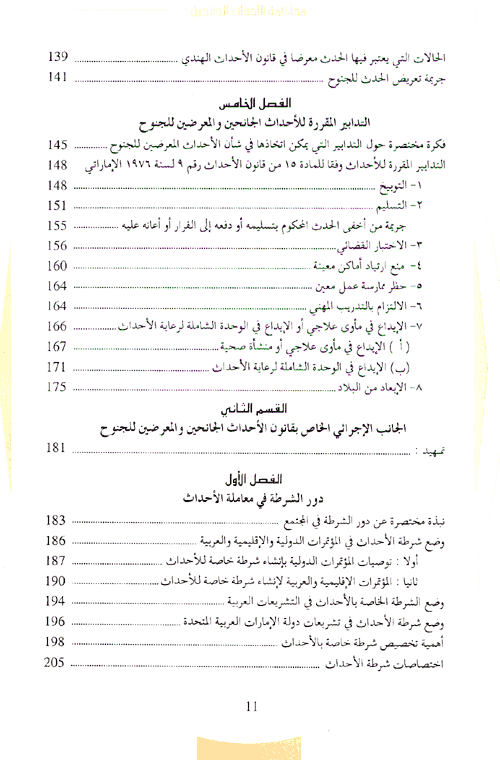 الحالات التي يعتبر فيها الحدث معرضا في قانون الأحداث الهندي ........ 139
جريمة تعريض الحدث للجنوح ........ 141
الفصل الخامس
التدابير المقررة للأحداث الجانحين والمعرضين للجنوح
فكرة مختصرة حول التدابير التي يمكن اتخاذها في شأن الأحداث المعرضين للجنوح ........ 145
التدابير المقررة للأحداث وفقا للمادة ١٥ من قانون الأحداث رقم ٩ لسنة ١٩٧٦ الإماراتي 148
١- التوبيخ ........ 148
٢- التسليم ........ 151
جريمة من أخفى الحدث المحكوم بتسليمه أو دفعه إلى الفرار أو أعانه عليه ........ 155
٣- الاختبار القضائي ........ 156
٤- منع ارتياد أماكن معينة ........ 160
٥- حظر ممارسة عمل معين ........ 164
٦- الالتزام بالتدريب المهني ........ 164
٧- الإيداع في مأوى علاجي أو الإيداع في الوحدة الشاملة لرعاية الأحداث ........ 166
( أ ) الإيداع في مأوى علاجي أو منشأة صحية ........ 167
(ب) الإيداع في الوحدة الشاملة لرعاية الأحداث ........ 171
٨- الإبعاد من البلاد ........ 175
القسم الثاني
الجانب الإجرائي الخاص بقانون الأحداث الجانحين والمعرضين للجنوح
تمهيد : ........ 181
الفصل الأول
دور الشرطة في معاملة الأحداث
نبذة مختصرة عن دور الشرطة في المجتمع ........ 183
وضع شرطة الأحداث في المؤتمرات الدولية والإقليمية والعربية ........ 186
أولا : توصيات المؤتمرات الدولية بإنشاء شرطة خاصة للأحداث ........ 187
ثانيا : المؤتمرات الإقليمية والعربية لإنشاء شرطة خاصة للأحداث ........ 190
وضع الشرطة الخاصة بالأحداث في التشريعات العربية ........ 194
وضع شرطة الأحداث في تشريعات دولة الإمارات العربية المتحدة ........ 196
أهمية تخصيص شرطة خاصة بالأحداث ........ 198
اختصاصات شرطة الأحداث ........ 205
11